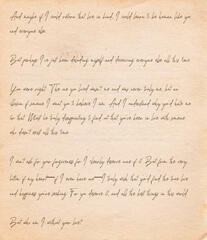 And maybe if I could return that love in kind, I could learn to be human like you
and everyone else.
But perhaps I've just been deluding myself and deceiving everyone else all this time.
You were right. The me you loved wasn't me and was never truly me, but an
illusion of someone I want you to believe I am. And I understand why you'd hate me
for that. Must be truly disappointing to find out that you've been in love with someone
who doesn't exist all this time.
I can't ask for your forgiveness for I clearly deserve none of it. But from the very
bottom of my heart—if I even have one—I truly wish that you'd find the true love
and happiness you're seeking. For you deserve it, and all the best things in this world.
But who am I without your love?